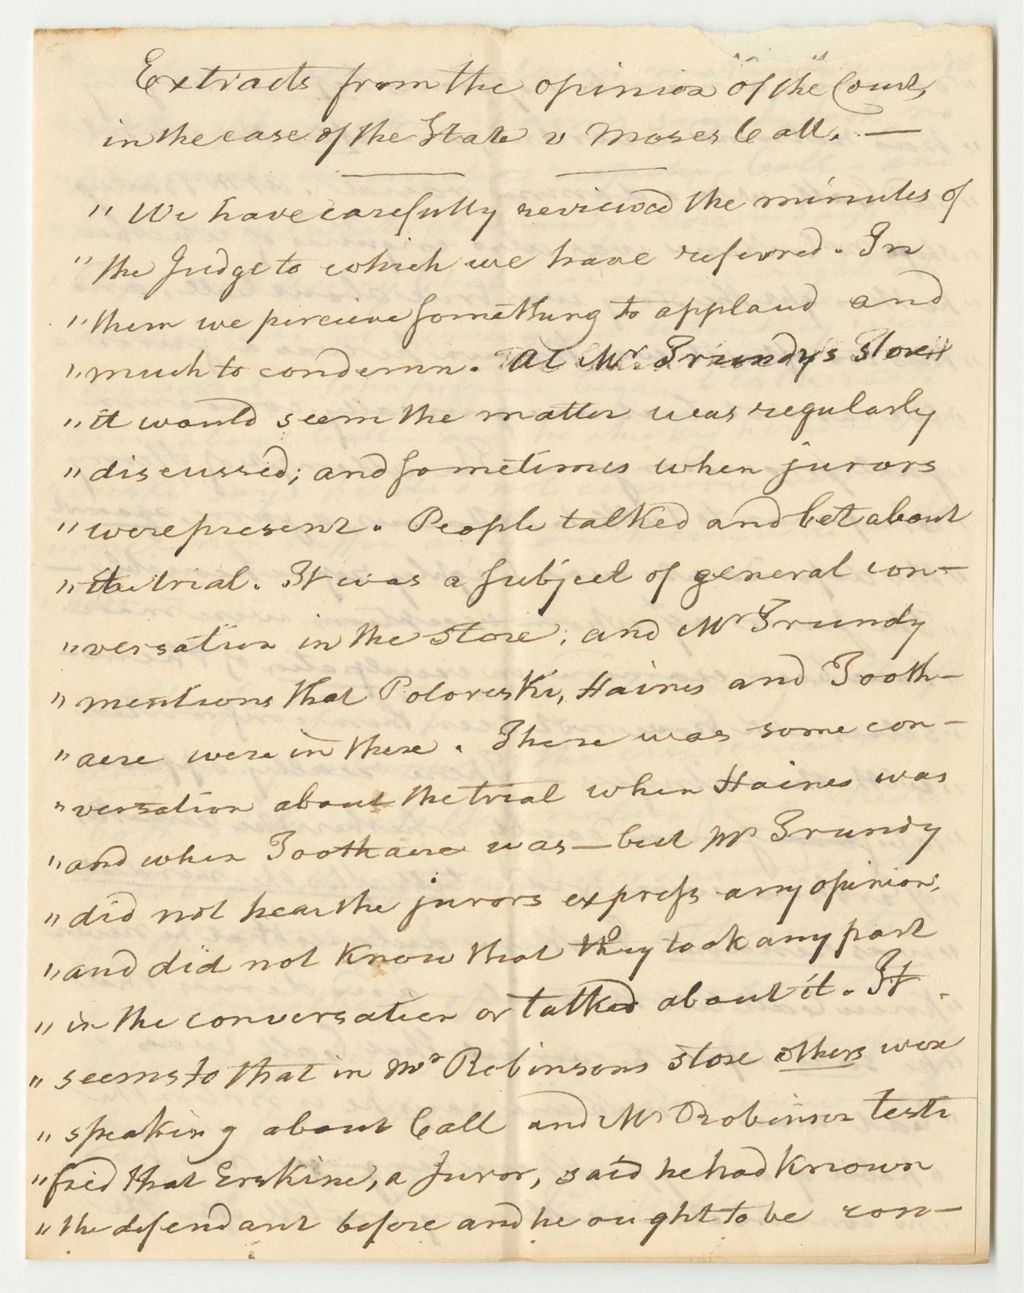 Extracts from the opinion of the Court,
in the case of the State v Moses Call. —
" We have carefully reviewed the minutes of
" the Judge to which we have referred. In
" them we percieve something to applaud and
" much to condemn. At Mr. Grundy's Store
" it would seem the matter was regularly
" discussed; and sometimes when jurors
" were present. People talked and bet about
" the trial. It was a subject of general con-
" versation in the store; and Mr Grundy
" mentions that Poloreski, Haines and Tooth-
" acre were in there. There was some con-
" versation about the trial when Haines was
" and when Toothacre was — but Mr Grundy
" did not hear the jurors express any opinion;
" and did not know that they took any part
" in the conversation or talked about it. It
" seems to that in Mr Robinsons store others were
" speaking about Call and Mr Robinson testi
" fied that Erskine, a Juror, said he had known
" the defendant before and he ought to be con-